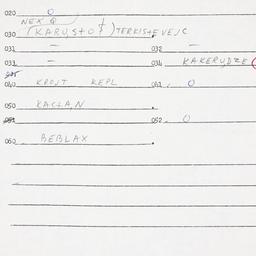 020 0
NEX Q
030 (KARUSTOF) TERKISTEVEJC
031 – 032 –
033 – 034 KAKERUDZE
040 KROJT KEPL 041 0
050 KACLAN
051 052 0
060 BEBLAX